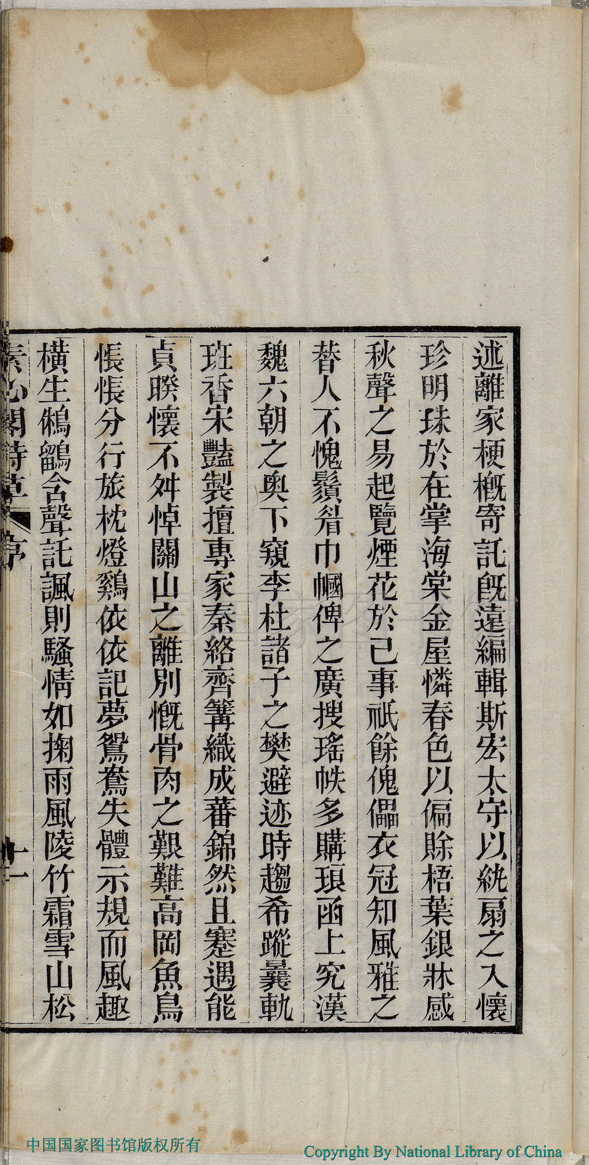 述離家梗槪寄託旣遠編輯斯宏太守以紈扇之入懷
珍明珠於在掌海棠金屋憐春色以偏賖梧葉銀牀感
秋聲之易起覽煙花於已事祇餘傀儡衣冠知風雅之
替人不愧鬚眉巾幗俾之廣搜瑤帙多購琅函上究漢
魏六朝之奧下窺李杜諸子之樊避迹時趨希蹤曩軌
班香宋豔製擅專家秦絡齊篝織成蕃錦然且蹇遇能
貞睽懷不舛悼關山之離別慨骨肉之艱難高岡魚鳥
悵悵分行旅枕燈鷄依依記夢鴛鴦失體示規而風趣
橫生鶺鶺含聲託諷則騷情如掬雨風陵竹霜雪山松
素心閣詩草
序
十一
中国国家图书馆版权所有
Copyright By National Library of China